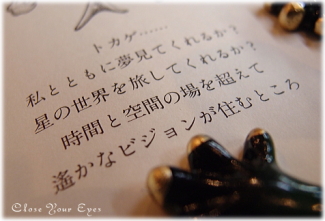 トカゲ……
私とともに夢見てくれるか?
星の世界を旅してくれるか?
時間と空間の場を超えて
遙かなビジョンが住むところ
Close Your Eyes